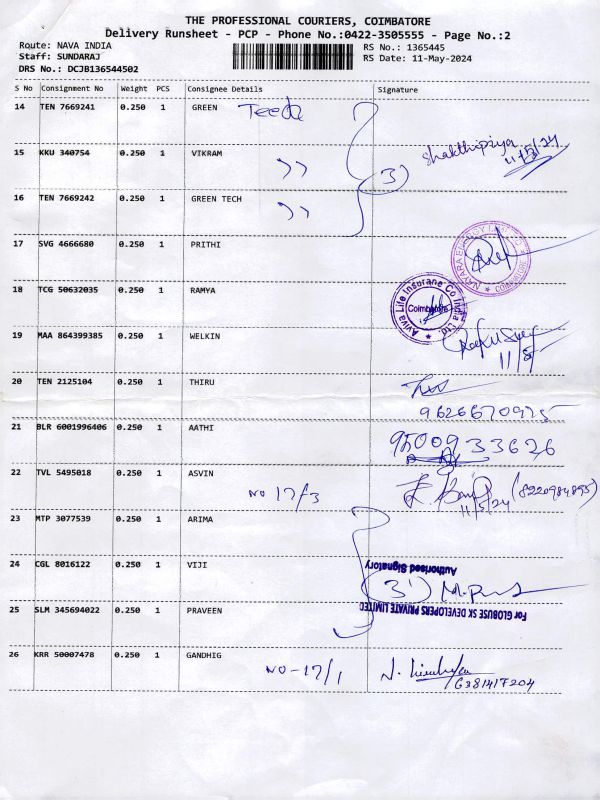 THE PROFESSIONAL COURIERS, COIMBATORE
Delivery Runsheet - PCP - Phone No.:0422-3505555 - Page No.:2
Route: NAVA INDIA
RS No.: 1365445
Staff: SUNDARAJ
RS Date: 11-May-2024
DRS No.: DCJB136544502
S No Consignment No Weight PCS Consignee Details Signature
14 TEN 7669241 0.250 1 GREEN Teech
15 KKU 340754 0.250 1 VIKRAM ,, (3) Shakthipriya
11/5/24
16 TEN 7669242 0.250 1 GREEN TECH ,,
17 SVG 4666680 0.250 1 PRITHI
COIMBATORE
18 TCG 50632035 0.250 1 RAMYA
Aviva Life Insurane Co India Ltd.
Coimbatore
19 MAA 864399385 0.250 1 WELKIN
11/5
20 TEN 2125104 0.250 1 THIRU
9626670975
21 BLR 6001996406 0.250 1 AATHI 9500933626
22 TVL 5495018 0.250 1 ASVIN NO 17/3 (8220984895)
11/5/24
23 MTP 3077539 0.250 1 ARIMA
24 CGL 8016122 0.250 1 VIJI
Authorised Signatory
(3)
25 SLM 345694022 0.250 1 PRAVEEN
For GLOBUSE SK DEVELOPERS PRIVATE LIMITED
26 KRR 50007478 0.250 1 GANDHIG NO-17/1
6381417204